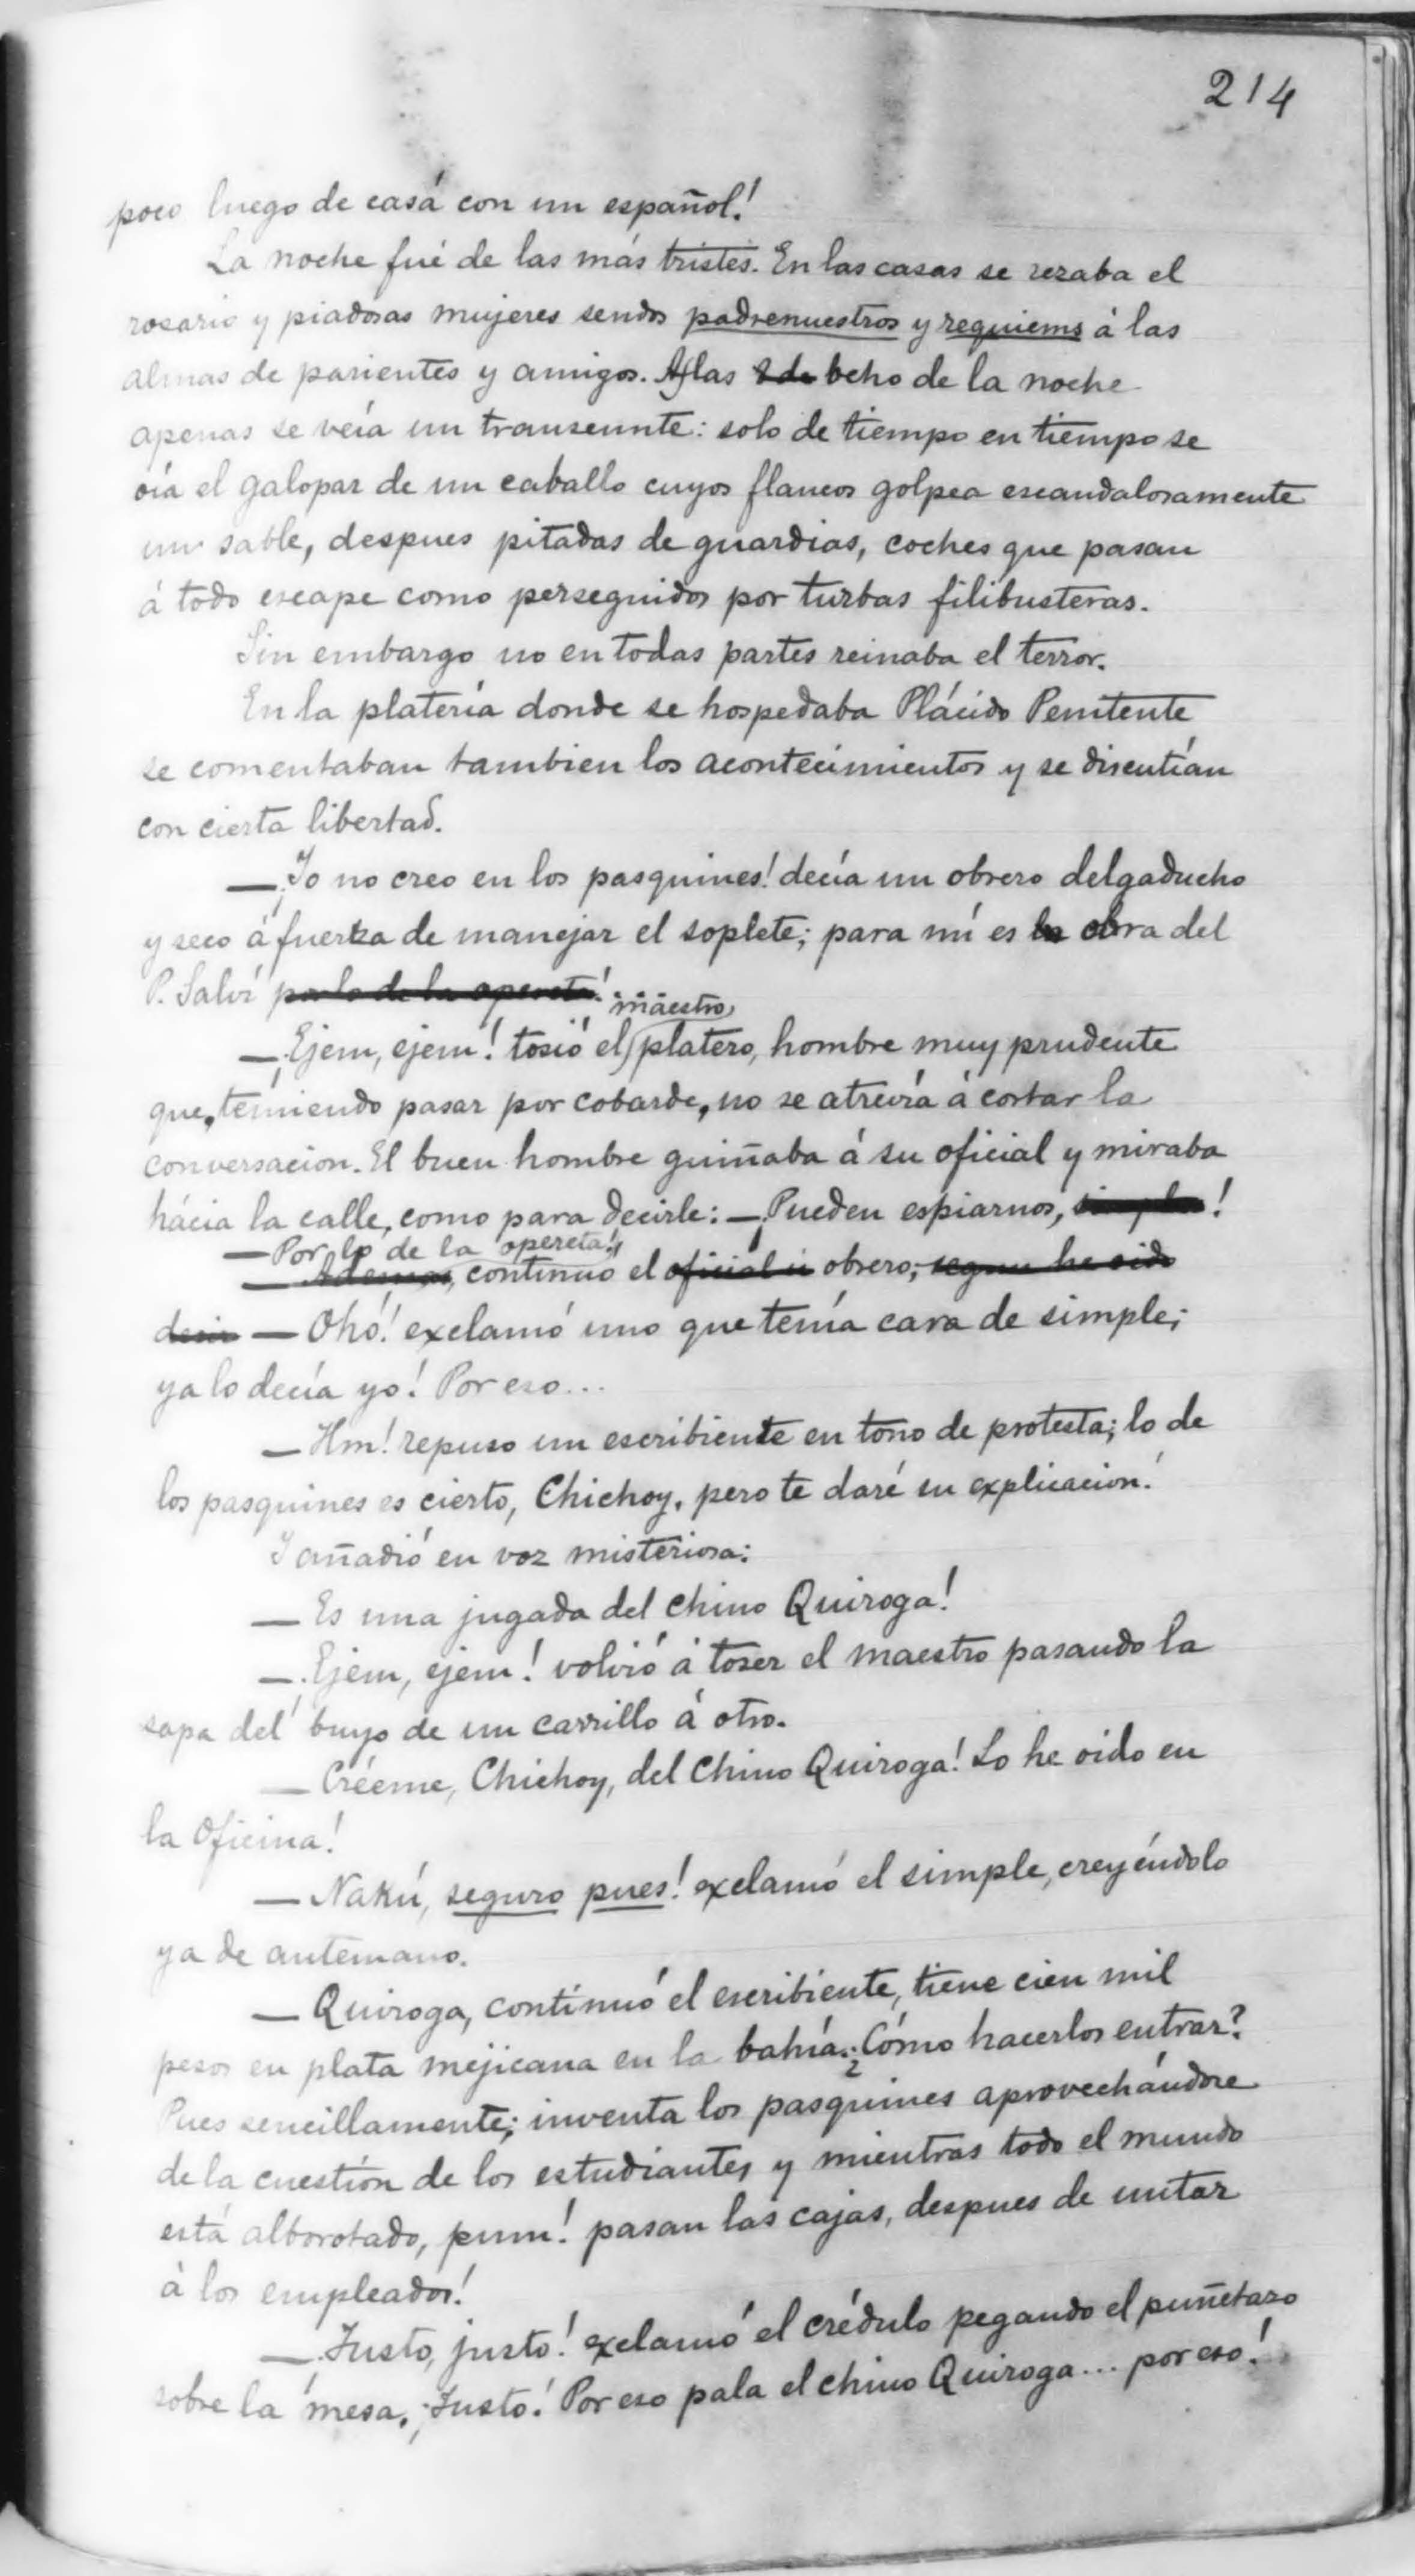 214
poco luego de casá con un español!
La noche fué de las más tristes. En las casas se rezaba el
rosario y piadosas mujeres sendos padrenuestros y requiems á las
almas de parientes y amigos. A las 8 de ocho de la noche
apenas se veía un transeunte: solo de tiempo en tiempo se
oía el galopar de un caballo cuyos flancos golpea escandalosamente
un sable, despues pitadas de guardias, coches que pasan
á todo escape como perseguidos por turbas filibusteras.
Sin embargo no en todas partes reinaba el terror.
En la platería donde se hospedaba Plácido Penitente
se comentaban tambien los acontecimientos y se discutían
con cierta libertad.
— ¡Yo no creo en los pasquines! decía un obrero delgaducho
y seco á fuerza de manejar el soplete; para mí es la obra del
P. Salví por lo de la opereta!
maestro
— ¡Ejem, ejem! tosió el platero, hombre muy prudente
que, temiendo pasar por cobarde, no se atrevía á cortar la
conversacion. El buen hombre guiñaba á su oficial y miraba
hácia la calle, como para decirle: — ¡Pueden espiarnos, simples!
— Por lo de la opereta!
— Ademas, continuó el oficial ú obrero, segun he oido
decir — Ohó! exclamó uno que tenía cara de simple;
ya lo decía yo! Por eso...
— Hm! repuso un escribiente en tono de protesta; lo de
los pasquines es cierto, Chichoy, pero te daré su explicacion!
Y añadió en voz misteriosa:
— Es una jugada del chino Quiroga!
— ¡Ejem, ejem! volvió á toser el maestro pasando la
sapa del buyo de un carrillo á otro.
— Créeme, Chichoy, del chino Quiroga! Lo he oido en
la oficina!
— Nakú, seguro pues! exclamó el simple, creyéndolo
ya de antemano.
— Quiroga, continuó el escribiente, tiene cien mil
pesos en plata mejicana en la bahía. ¿Cómo hacerlos entrar?
Pues sencillamente; inventa los pasquines aprovechándose
de la cuestión de los estudiantes y mientras todo el mundo
está alborotado, pum! pasan las cajas, despues de untar
á los empleados!
— ¡Justo, justo! exclamó el crédulo pegando el puñetazo
sobre la mesa, ¡Justo! Por eso pala el chino Quiroga... por eso!